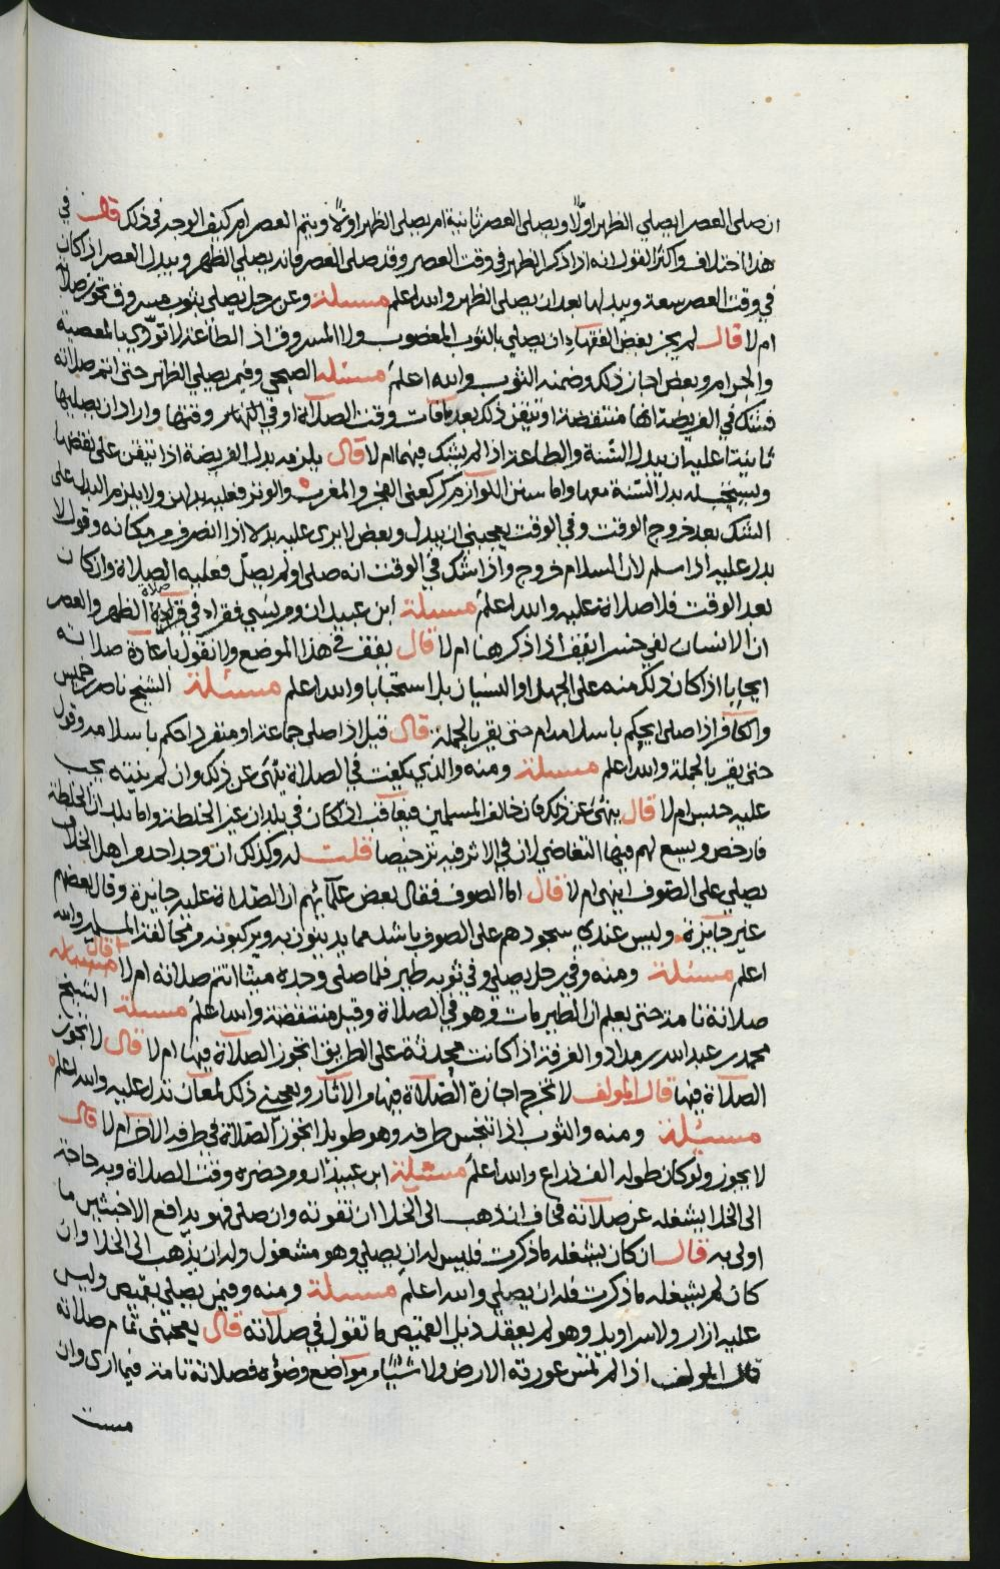 ان صلى العصر ايصلي الظهر اولا ويصلي العصر ثانية ام يصلي الظهر اولا ويتم العصر ام كيف الوجه في ذلك قال في
هذا اختلاف واكثر القول انه اذا ذكر الظهر في وقت العصر وقد صلى العصر فانه يصلي الظهر ويبدل العصر اذا كان
في وقت العصر سعة ويبدلها بعد ان يصلي الظهر والله اعلم مسئلة وعن رجل يصلي بثوب مسروق تجوز صلاته
ام لا قال لم يجز بعض الفقهاء ان يصلي بالثوب المغصوب ولا المسروق اذ الطاعة لا تؤدى بالمعصية
والحرام وبعض اجاز ذلك وضمنه الثوب والله اعلم مسئلة الصبحي وفيمن يصلي الظهر حتى اتم صلاته
فشك في الفريضة انها منتقضة او تيقن ذلك بعد ما فات وقت الصلاة او في وقتها واراد ان يصليها
ثانية عليه ان يبدل السنة والطاعة اذا لم يشك فيهما ام لا قال يلزمه بدل الفريضة اذا تيقن على نقضها
ويستحب له بدل السنة معها واما سنن اللوازم كركعتي الفجر والمغرب والوتر فعليه بدلهن ولا يلزم البدل على
الشك بعد خروج الوقت وفي الوقت يعجبني ان يبدل وبعض لا يرى عليه بدلا اذا انصرف من مكانه وقول لا
بدل عليه اذا سلم لان السلام خروج واذا شك في الوقت انه صلى او لم يصل فعليه الصلاة وان كان
بعد الوقت فلا صلاة عليه والله اعلم مسئلة ابن عبيدان ومن نسي فقرا في صلاة الظهر والعصر
ان الانسان لفي خسر ايقف اذا ذكر هنا ام لا قال يقف في هذا الموضع ولا نقول باعادة صلاته
ايجابا اذا كان ذلك منه على الجهل او النسيان بلا استحبابا والله اعلم مسئلة الشيخ ناصر بن خميس
والكافر اذا صلى ايحكم باسلامه ام حتى يقر بالجملة قال قيل اذا صلى جماعة او منفردا حكم باسلامه وقول
حتى يقر بالجملة والله اعلم مسئلة ومنه والذي يكفت في الصلاة ينهى عن ذلك وان لم ينته يجب
عليه حبس ام لا قال ينهى عن ذلك فان خالف المسلمين فيعاقب اذا كان في بلدان غير الخلطة واما بلدان الخلطة
فارخص ويسع لهم فيها التغاضي لان في الاثر فيه ترخيصا قلت له وكذلك ان وجد احد من اهل الخلاف
يصلي على الصوف اينهى ام لا قال اما الصوف فقال بعض علمائهم ان الصلاة عليه جائزة وقال بعضهم
غير جايزة وليس عندي سجودهم على الصوف باشد مما يدينون به ويركبونه من مخالفة المسلمين والله
اعلم مسئلة ومنه وفي رجل يصلي وفي ثوبه طير فلما صلى وجده ميتا اتتم صلاته ام لا قال
صلاته تامة حتى يعلم ان الطير مات وهو في الصلاة وقيل منتقضة والله اعلم مسئلة الشيخ
محمد بن عبدالله بن مداد والغرفة اذا كانت محدثة على الطريق اتجوز الصلاة فيها ام لا قال لا تجوز
الصلاة فيها قال المؤلف لا تخرج اجازة الصلاة فيها من الاثار ويعجبني ذلك لمعان تدل عليه والله اعلم
مسئلة ومنه والثوب اذا تنجس طرفه وهو طويل اتجوز الصلاة في طرفه الاخر ام لا قال
لا يجوز ولو كان طوله الف ذراع والله اعلم مسئلة ابن عبيدان ومن حضره وقت الصلاة وبه حاجة
الى الخلا يشغله عن صلاته فخاف ان ذهب الى الخلا ان تفوته وان صلى فهو يدافع الاخبثين ما
اولى به قال ان كان يشغله ما ذكرت فليس له ان يصلي وهو مشغول وله ان يذهب الى الخلا وان
كان لم يشغله ما ذكرت فله ان يصلي والله اعلم مسئلة ومنه وفيمن يصلي بقميص وليس
عليه ازار ولا سراويل وهو لم يعقد ذيل القميص ما تقول في صلاته قال يعجبني تمام صلاته
قال المؤلف اذا لم تمس عورته الارض ولا شيئا من مواضع وضوءه فصلاته تامة فيما ارى وان
مست